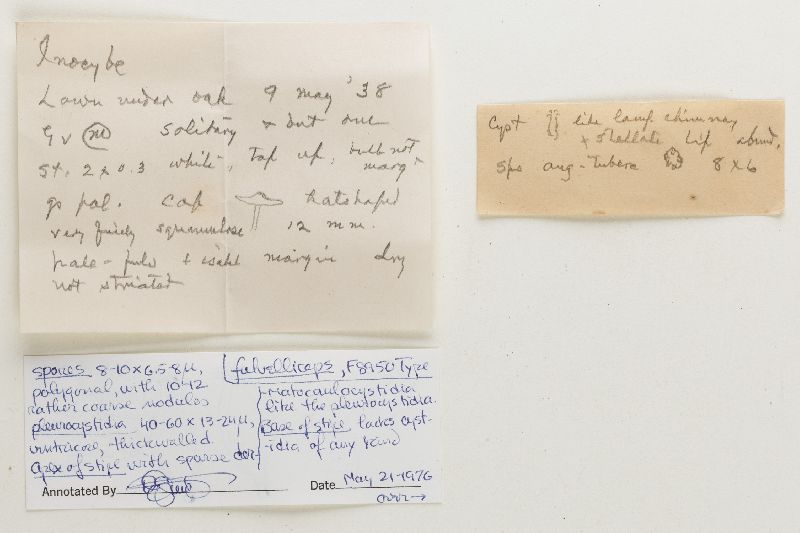 Inocybe
Lawn under oak 9 may '38
Gv m solitary & but one
St. 2 x 0.3 white, tap up, bulb not
marg.
gs pal. cap hatshaped
very finely squamulose 12 mm.
pale - fulv + isabel margin dry
not striated
Cyst like lamp chimney
+ stellate tip abund.
Sps ang-tuberc 8 x 6
spores 8-10 x 6.5-8µ,
polygonal, with 10-12
rather coarse nodules
pleurocystidia 40-60 x 13-24µ,
ventricose, thickwalled.
Apex of stipe with sparse der-
fulvelliceps, F8950 Type
matocaulocystidia
like the pleurocystidia.
Base of stipe lacks cyst-
idia of any kind
Annotated By
Date May 21-1976
over→